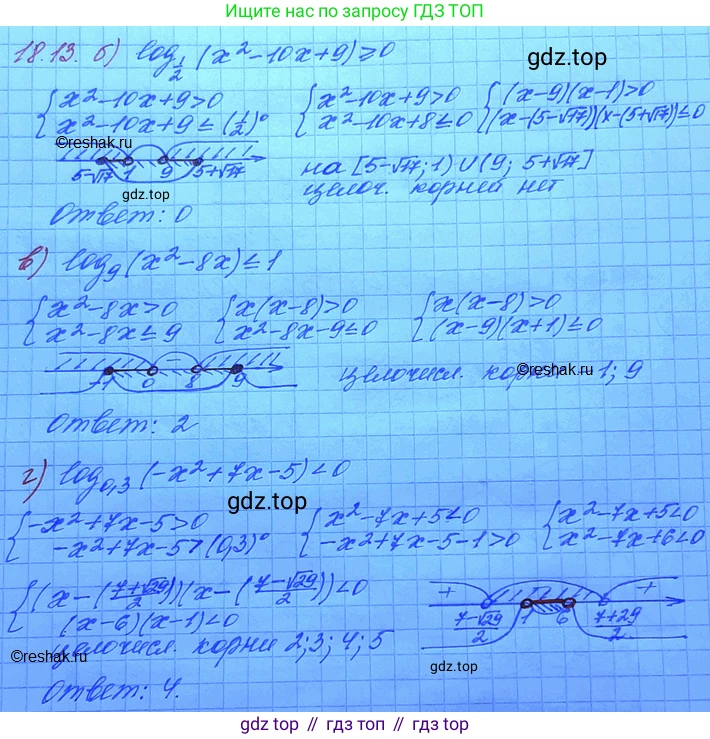 Ищите нас по запросу ГДЗ ТОП
18.13. б) log_{1/2} (x² - 10x + 9) ≥ 0
гдз.top
{ x² - 10x + 9 > 0 { x² - 10x + 9 > 0 { (x - 9)(x - 1) > 0
{ x² - 10x + 9 ≤ (1/2)⁰ { x² - 10x + 8 ≤ 0 { (x - (5 - √17))(x - (5 + √17)) ≤ 0
©reshak.ru
5-√17 1 9 5+√17 на [5 - √17; 1) ∪ (9; 5 + √17]
гдз.top целоч. корней нет
Ответ: 0
в) log₉ (x² - 8x) ≤ 1
{ x² - 8x > 0 { x(x - 8) > 0 { x(x - 8) > 0
{ x² - 8x ≤ 9 { x² - 8x - 9 ≤ 0 { (x - 9)(x + 1) ≤ 0
-
-1 0 8 9 целочисл. корни -1; 9
©reshak.ru
Ответ: 2
г) log_{0,3} (-x² + 7x - 5) < 0
гдз.top
{ -x² + 7x - 5 > 0 { x² - 7x + 5 < 0 { x² - 7x + 5 < 0
{ -x² + 7x - 5 > (0,3)⁰ { -x² + 7x - 5 - 1 > 0 { x² - 7x + 6 < 0
{ (x - ((7 + √29)/2))(x - ((7 - √29)/2)) < 0 + +
{ (x - 6)(x - 1) < 0 (7-√29)/2 1 6 (7+29)/2
целочисл. корни 2; 3; 4; 5
©reshak.ru
гдз.top
Ответ: 4.
гдз топ // гдз топ // гдз топ //